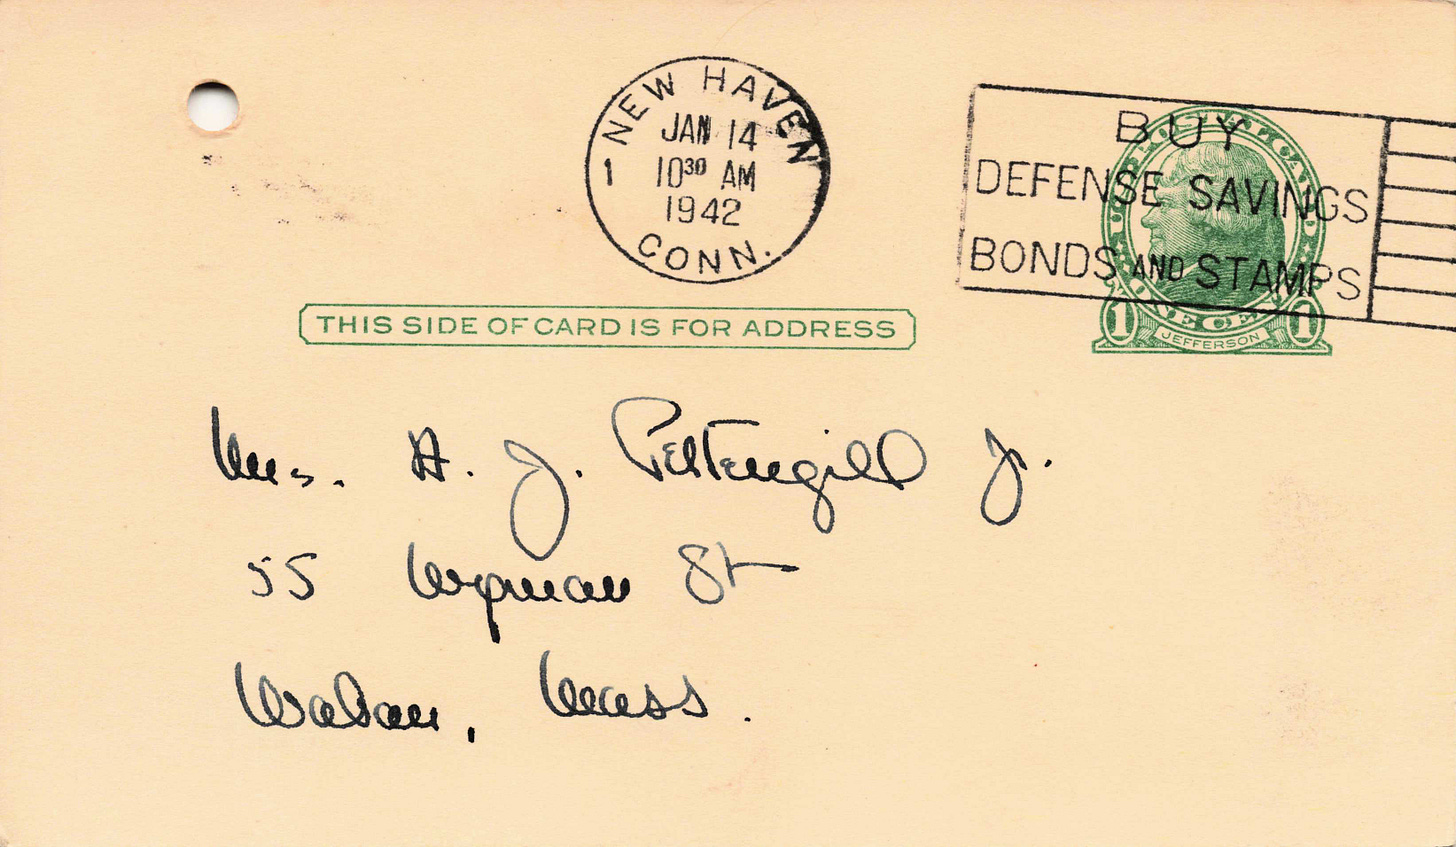 NEW HAVEN
1
JAN 14
10³⁰ AM
1942
CONN.
BUY
DEFENSE SAVINGS
BONDS AND STAMPS
U.S. POSTAL CARD
ONE CENT
1 1
JEFFERSON
THIS SIDE OF CARD IS FOR ADDRESS
Mrs. H. J. Pettengill Jr.
55 Wyman St
Waban, Mass.